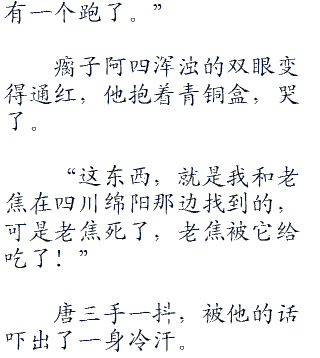 有一个跑了。”
瘸子阿四浑浊的双眼变
得通红，他抱着青铜盒，哭
了。
“这东西，就是我和老
焦在四川绵阳那边找到的，
可是老焦死了，老焦被它给
吃了！”
唐三手一抖，被他的话
吓出了一身冷汗。